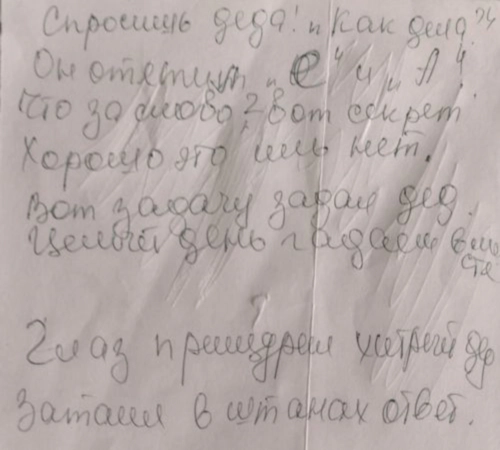 Спросишь деда: "Как дела?"
Он ответит "Е" и "Л".
Что за слово? - вот секрет
Хорошо это иль нет.
Вот задачу задал дед.
Целый день гадаем вме
сте
Глаз прищурил хитрый де
Затаил в штанах ответ.